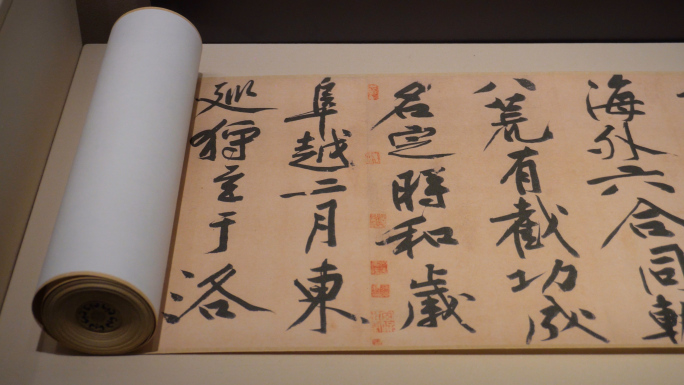 海外六合同軌
八荒有截功成
名定時和歲
阜越二月東
巡狩至于洛